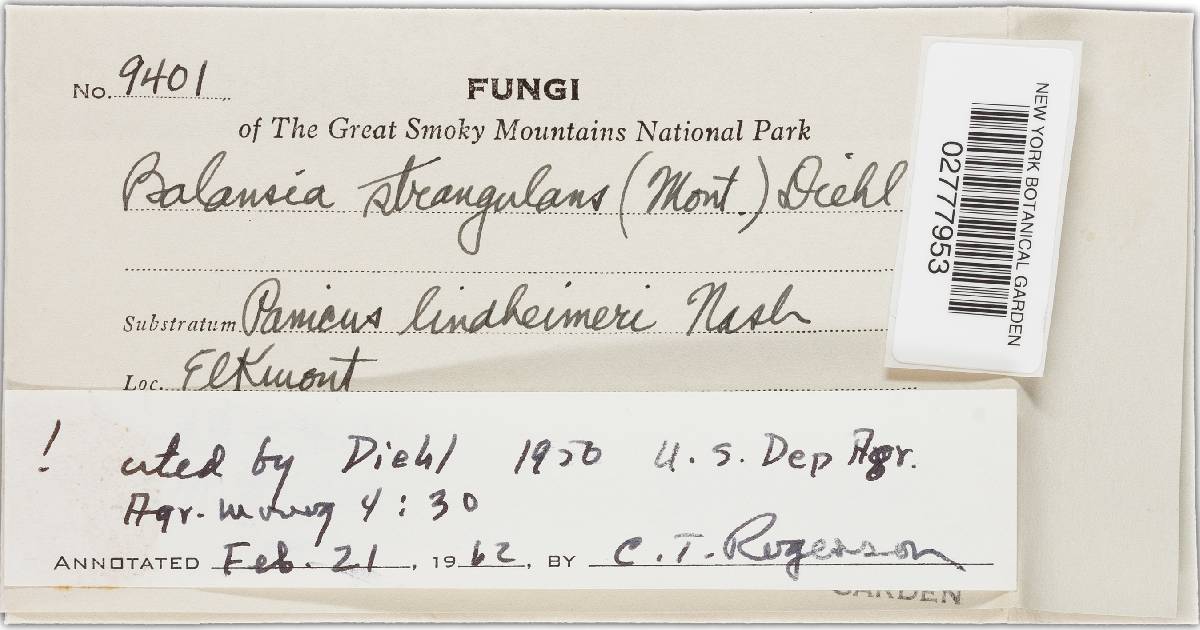 No. 9401
FUNGI
of The Great Smoky Mountains National Park
Balansia strangulans (Mont.) Diehl
Substratum Panicus lindheimeri Nash
Loc. Elkmont
! cited by Diehl 1950 U.S. Dep Agr.
Agr. 4:30
ANNOTATED Feb. 21, 1962, BY C.T. Rogerson
GARDEN
NEW YORK BOTANICAL GARDEN
02777953